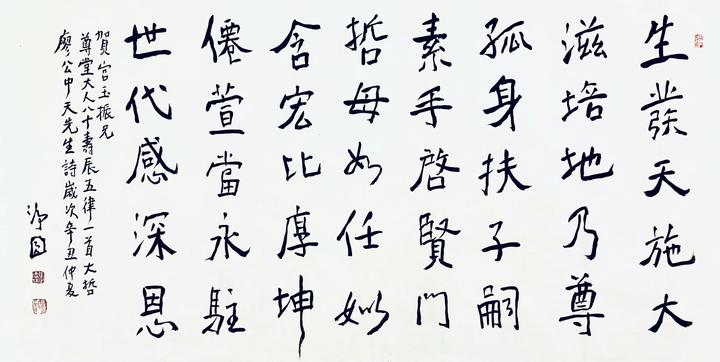 生發天施大
滋培地乃尊
孤身扶子嗣
素手啓賢門
哲母如任姒
含宏比厚坤
僊萱當永駐
世代感深恩
賀宮玉振兄
尊堂大人八十壽辰五律一首大哲
廖公中天先生詩歲次辛丑仲夏